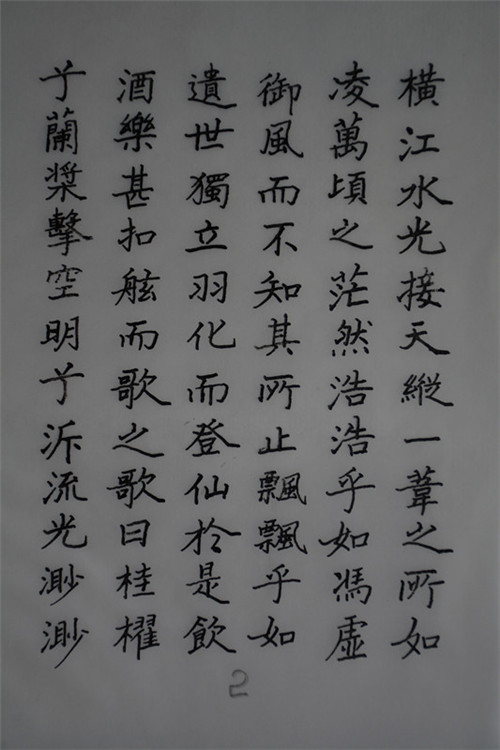 橫江水光接天縱一葦之所如
凌萬頃之茫然浩浩乎如馮虛
御風而不知其所止飄飄乎如
遺世獨立羽化而登仙於是飲
酒樂甚扣舷而歌之歌曰桂櫂
兮蘭槳擊空明兮泝流光渺渺
2